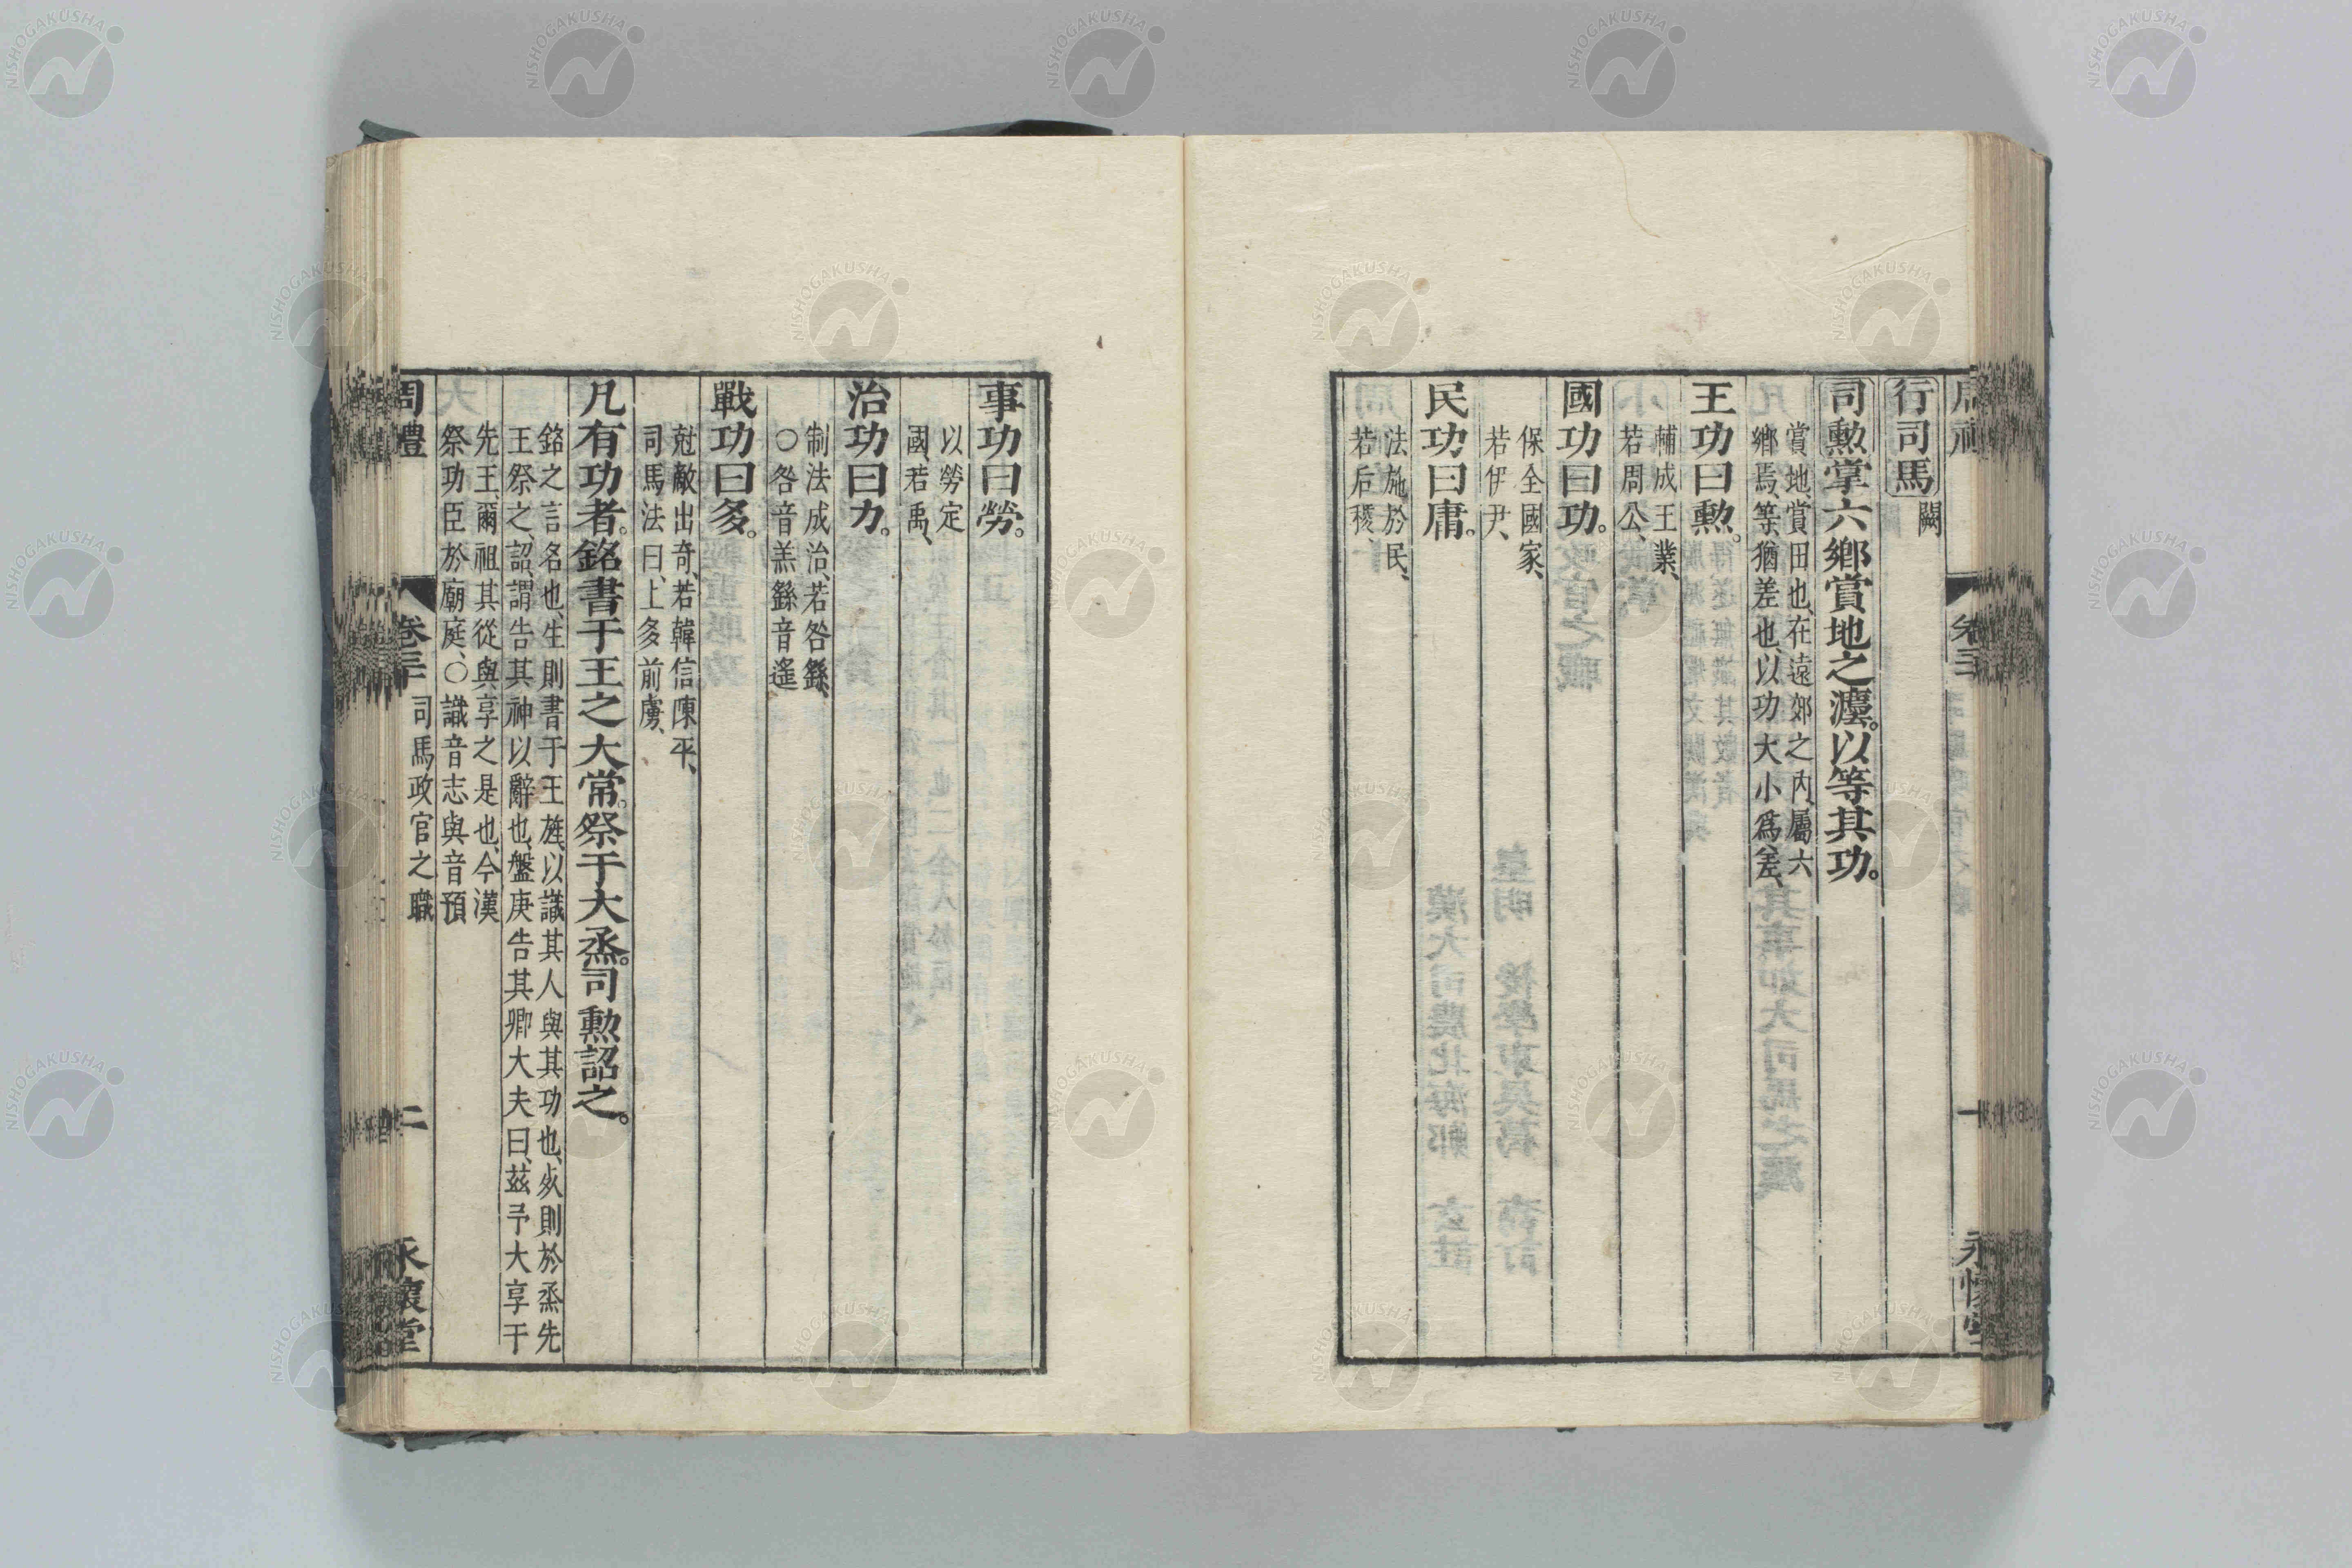 行司馬 闕
司勲掌六鄉賞地之灋。以等其功。
賞地、賞田也、在遠郊之内、屬六
鄉焉、等猶差也、以功大小爲差、
王功曰勲。
輔成王業、
若周公、
國功曰功。
保全國家、
若伊尹、
民功曰庸。
法施於民、
若后稷、
事功曰勞。
以勞定
國、若禹、
治功曰力。
制法成治、若咎繇、
○咎音羔繇音遙
戰功曰多。
尅敵出奇、若韓信陳平、
司馬法曰、上多前虜、
凡有功者。銘書于王之大常。祭于大烝。司勲詔之。
銘之言名也、生則書于王旌、以識其人與其功也、死則於烝先
王祭之、詔、謂告其神以辭也、盤庚告其卿大夫曰、茲予大享于
先王、爾祖其從與享之是也、今漢
祭功臣於廟庭、○識音志與音預
周禮 卷三 司馬政官之職 二 永懷堂